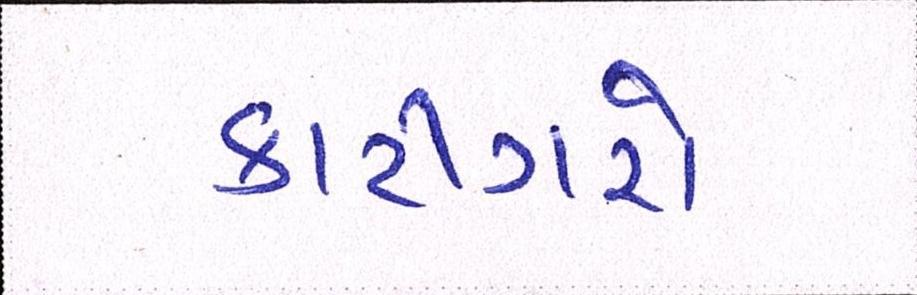 કારીગરો